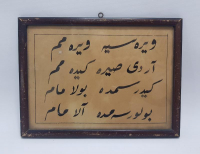 ویره سیه ویره مم
آردی صیره کیده مم
کیدرسمده بولا مام
بولورسمده آلا مام